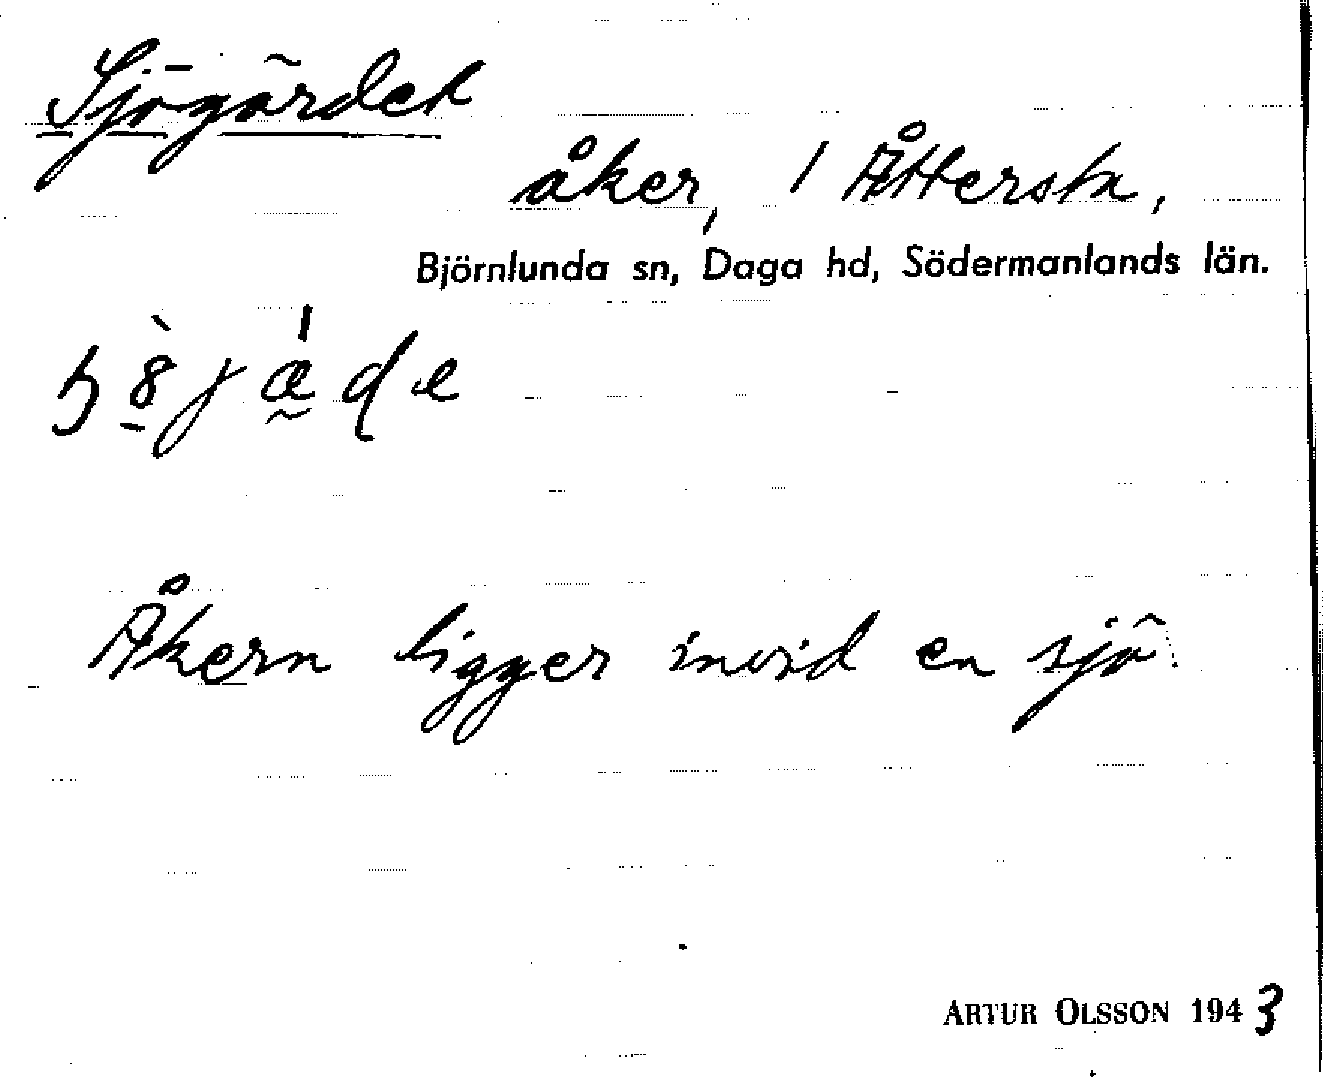 Sjögärdet
åker, 1 Åttersta,
Björnlunda sn, Daga hd, Södermanlands län.
Åkern ligger invid en sjö.
ARTUR OLSSON 1943